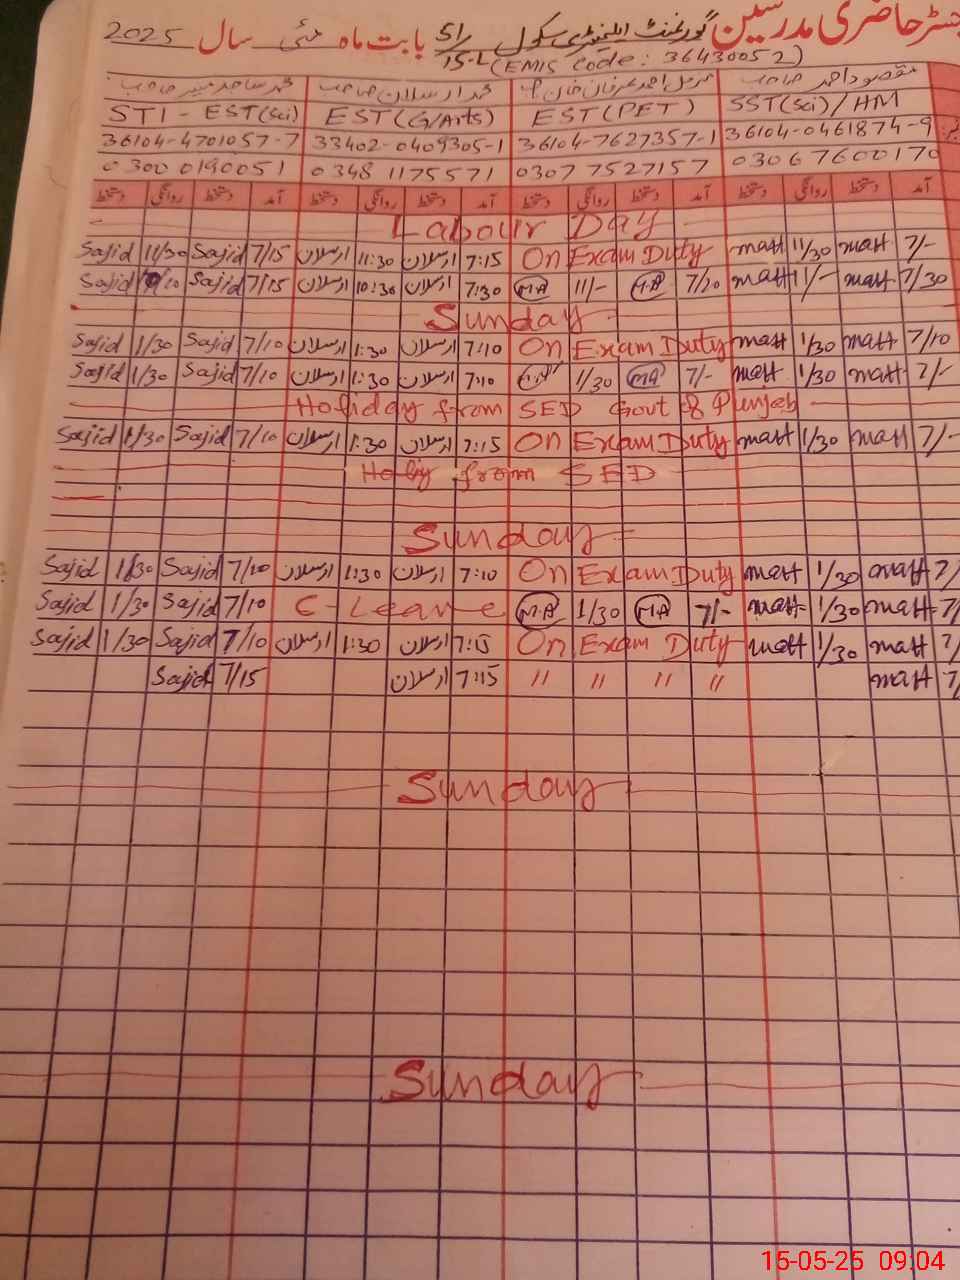 رجسٹر حاضری مدرسین گورنمنٹ ایلیمنٹری سکول 51/15-L بابت ماہ مئی سال 2025
(EMIS Code: 36430052)
مقصود احمد صاحب محمد ارسلان صاحب
SST(Sci)/HM EST(PET) EST(G/Arts) STI - EST(Sci)
36104-0461874-9 36104-7627357-1 33402-0409305-1 36104-4701057-7
03067600170 0307 7527157 0348 1175571 0300 0190051
آمد دستخط روانگی دستخط آمد دستخط روانگی دستخط آمد دستخط روانگی دستخط آمد دستخط روانگی دستخط
Labour Day
Sajid 11/30 Sajid 7/15 ارسلان 11:30 ارسلان 7:15 On Exam Duty matt 11/30 matt 7/-
Sajid /10 Sajid 7/15 ارسلان 10:30 ارسلان 7:30 MA 11/- MA 7/20 matt 11/- matt 7/30
Sunday
Sajid 1/30 Sajid 7/10 ارسلان 1:30 ارسلان 7:10 On Exam Duty matt 1/30 matt 7/10
Sajid 1/30 Sajid 7/10 ارسلان 1:30 ارسلان 7:10 MA 1/30 MA 7/- matt 1/30 matt 7/-
Holiday from SED Govt of Punjab
Sajid 1/30 Sajid 7/10 ارسلان 1:30 ارسلان 7:15 On Exam Duty matt 1/30 matt 7/-
from SED
Sunday
Sajid 1/30 Sajid 7/10 ارسلان 1:30 ارسلان 7:10 On Exam Duty matt 1/30 matt 7/
Sajid 1/30 Sajid 7/10 C-Leave MA 1/30 MA 7/- matt 1/30 matt 7/
Sajid 1/30 Sajid 7/10 ارسلان 1:30 ارسلان 7:15 On Exam Duty matt 1/30 matt 7/
Sajid 7/15 ارسلان 7:15 " " " " matt 7/
Sunday
Sunday
15-05-25 09:04